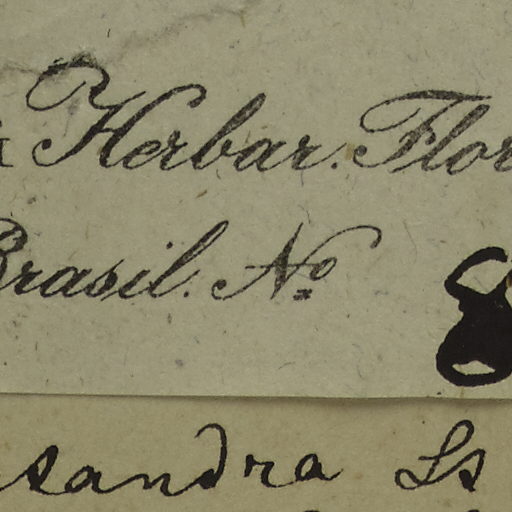 Herbar. Flor
Brasil. No 8
sandra Ls